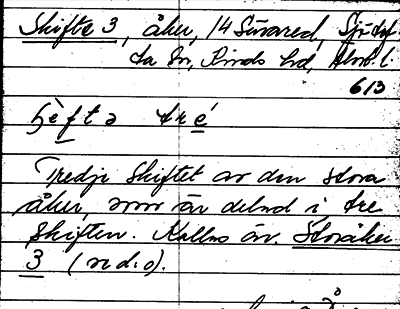 Skifte 3, åker, 14 Süvared, Sjötof
ta sn, Kinds hd, Älvsb. l.
613
ʃèfta tré
Tredje skiftet av den stora
åker, som är delad i tre
skiften. Kallas äv. Storåker
3 (se d.o).